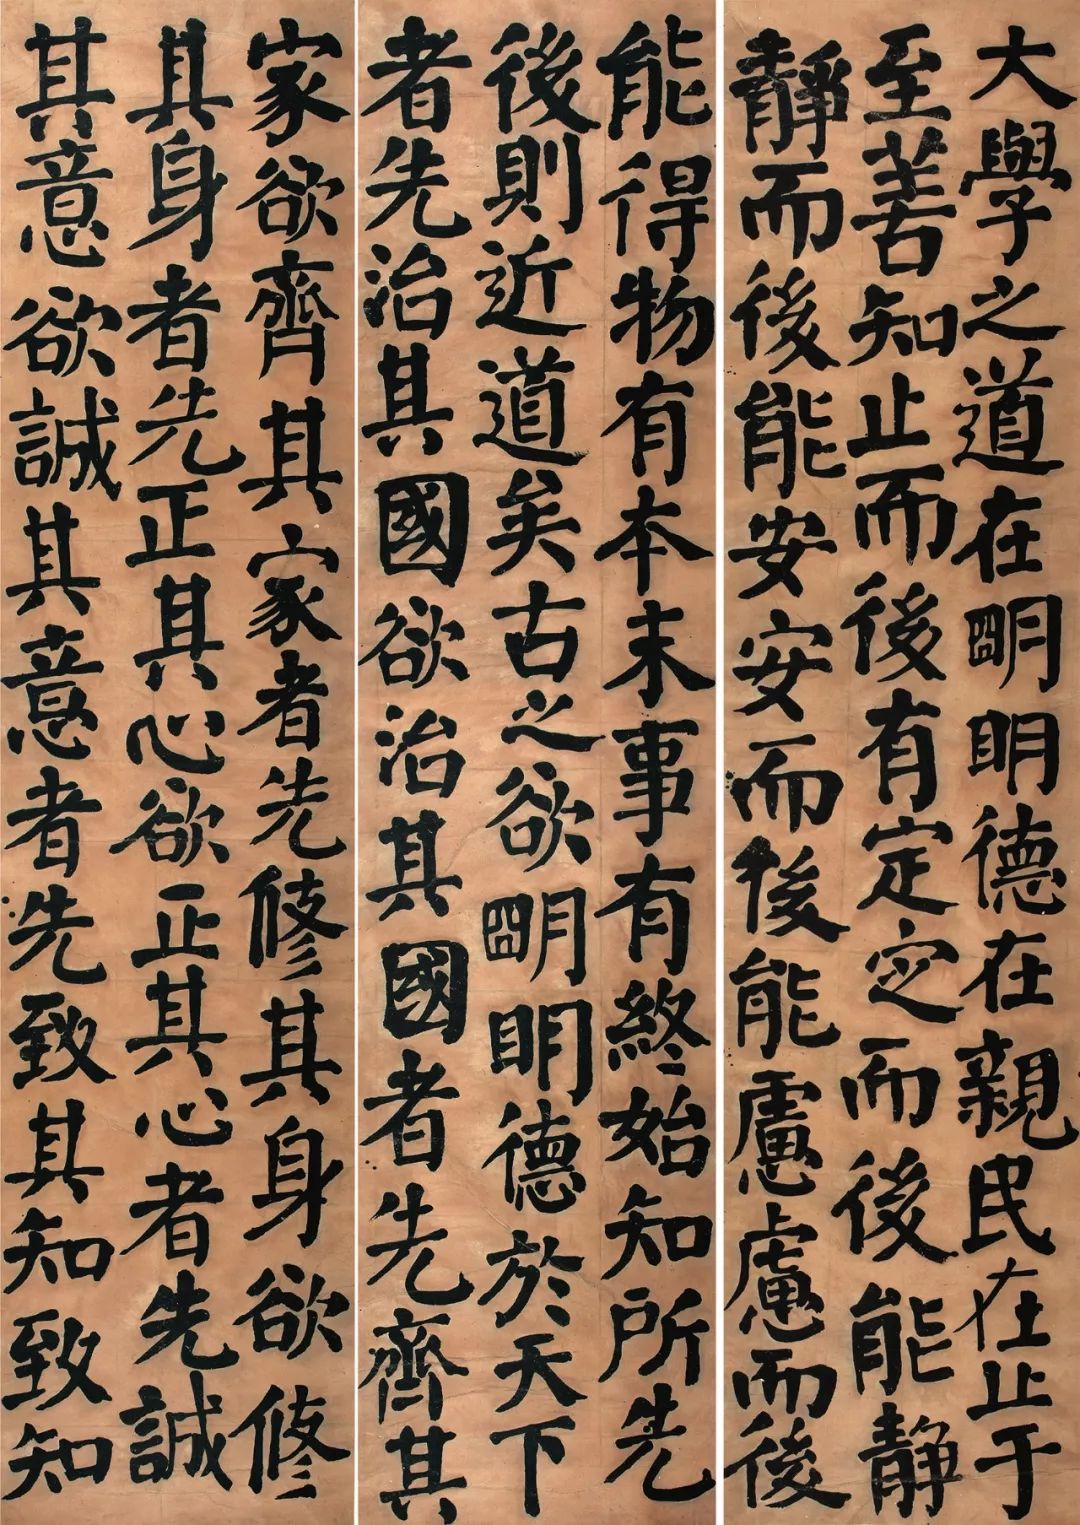 大學之道在明明德在親民在止于
至善知止而後有定定而後能靜
靜而後能安安而後能慮慮而後
能得物有本末事有終始知所先
後則近道矣古之欲明明德於天下
者先治其國欲治其國者先齊其
家欲齊其家者先修其身欲修
其身者先正其心欲正其心者先誠
其意欲誠其意者先致其知致知